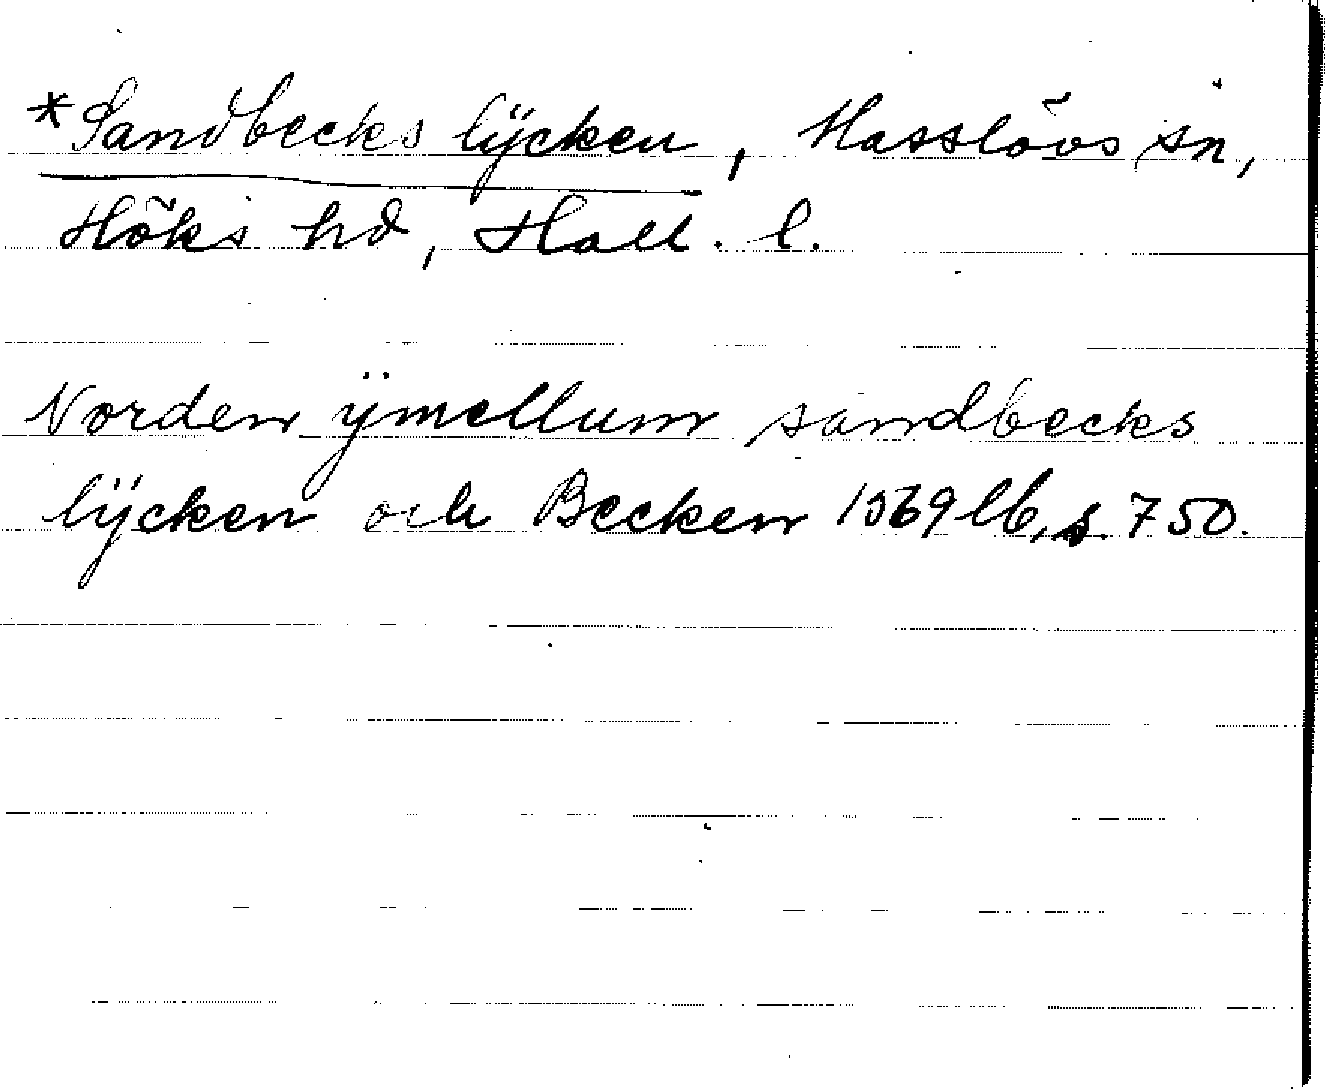 *Sandbecks lÿcken, Hasslövs sn,
Höks hd, Hall. l.
Norden ÿmellum sandbecks
lÿcken och Becken 1569 lb, s. 750.